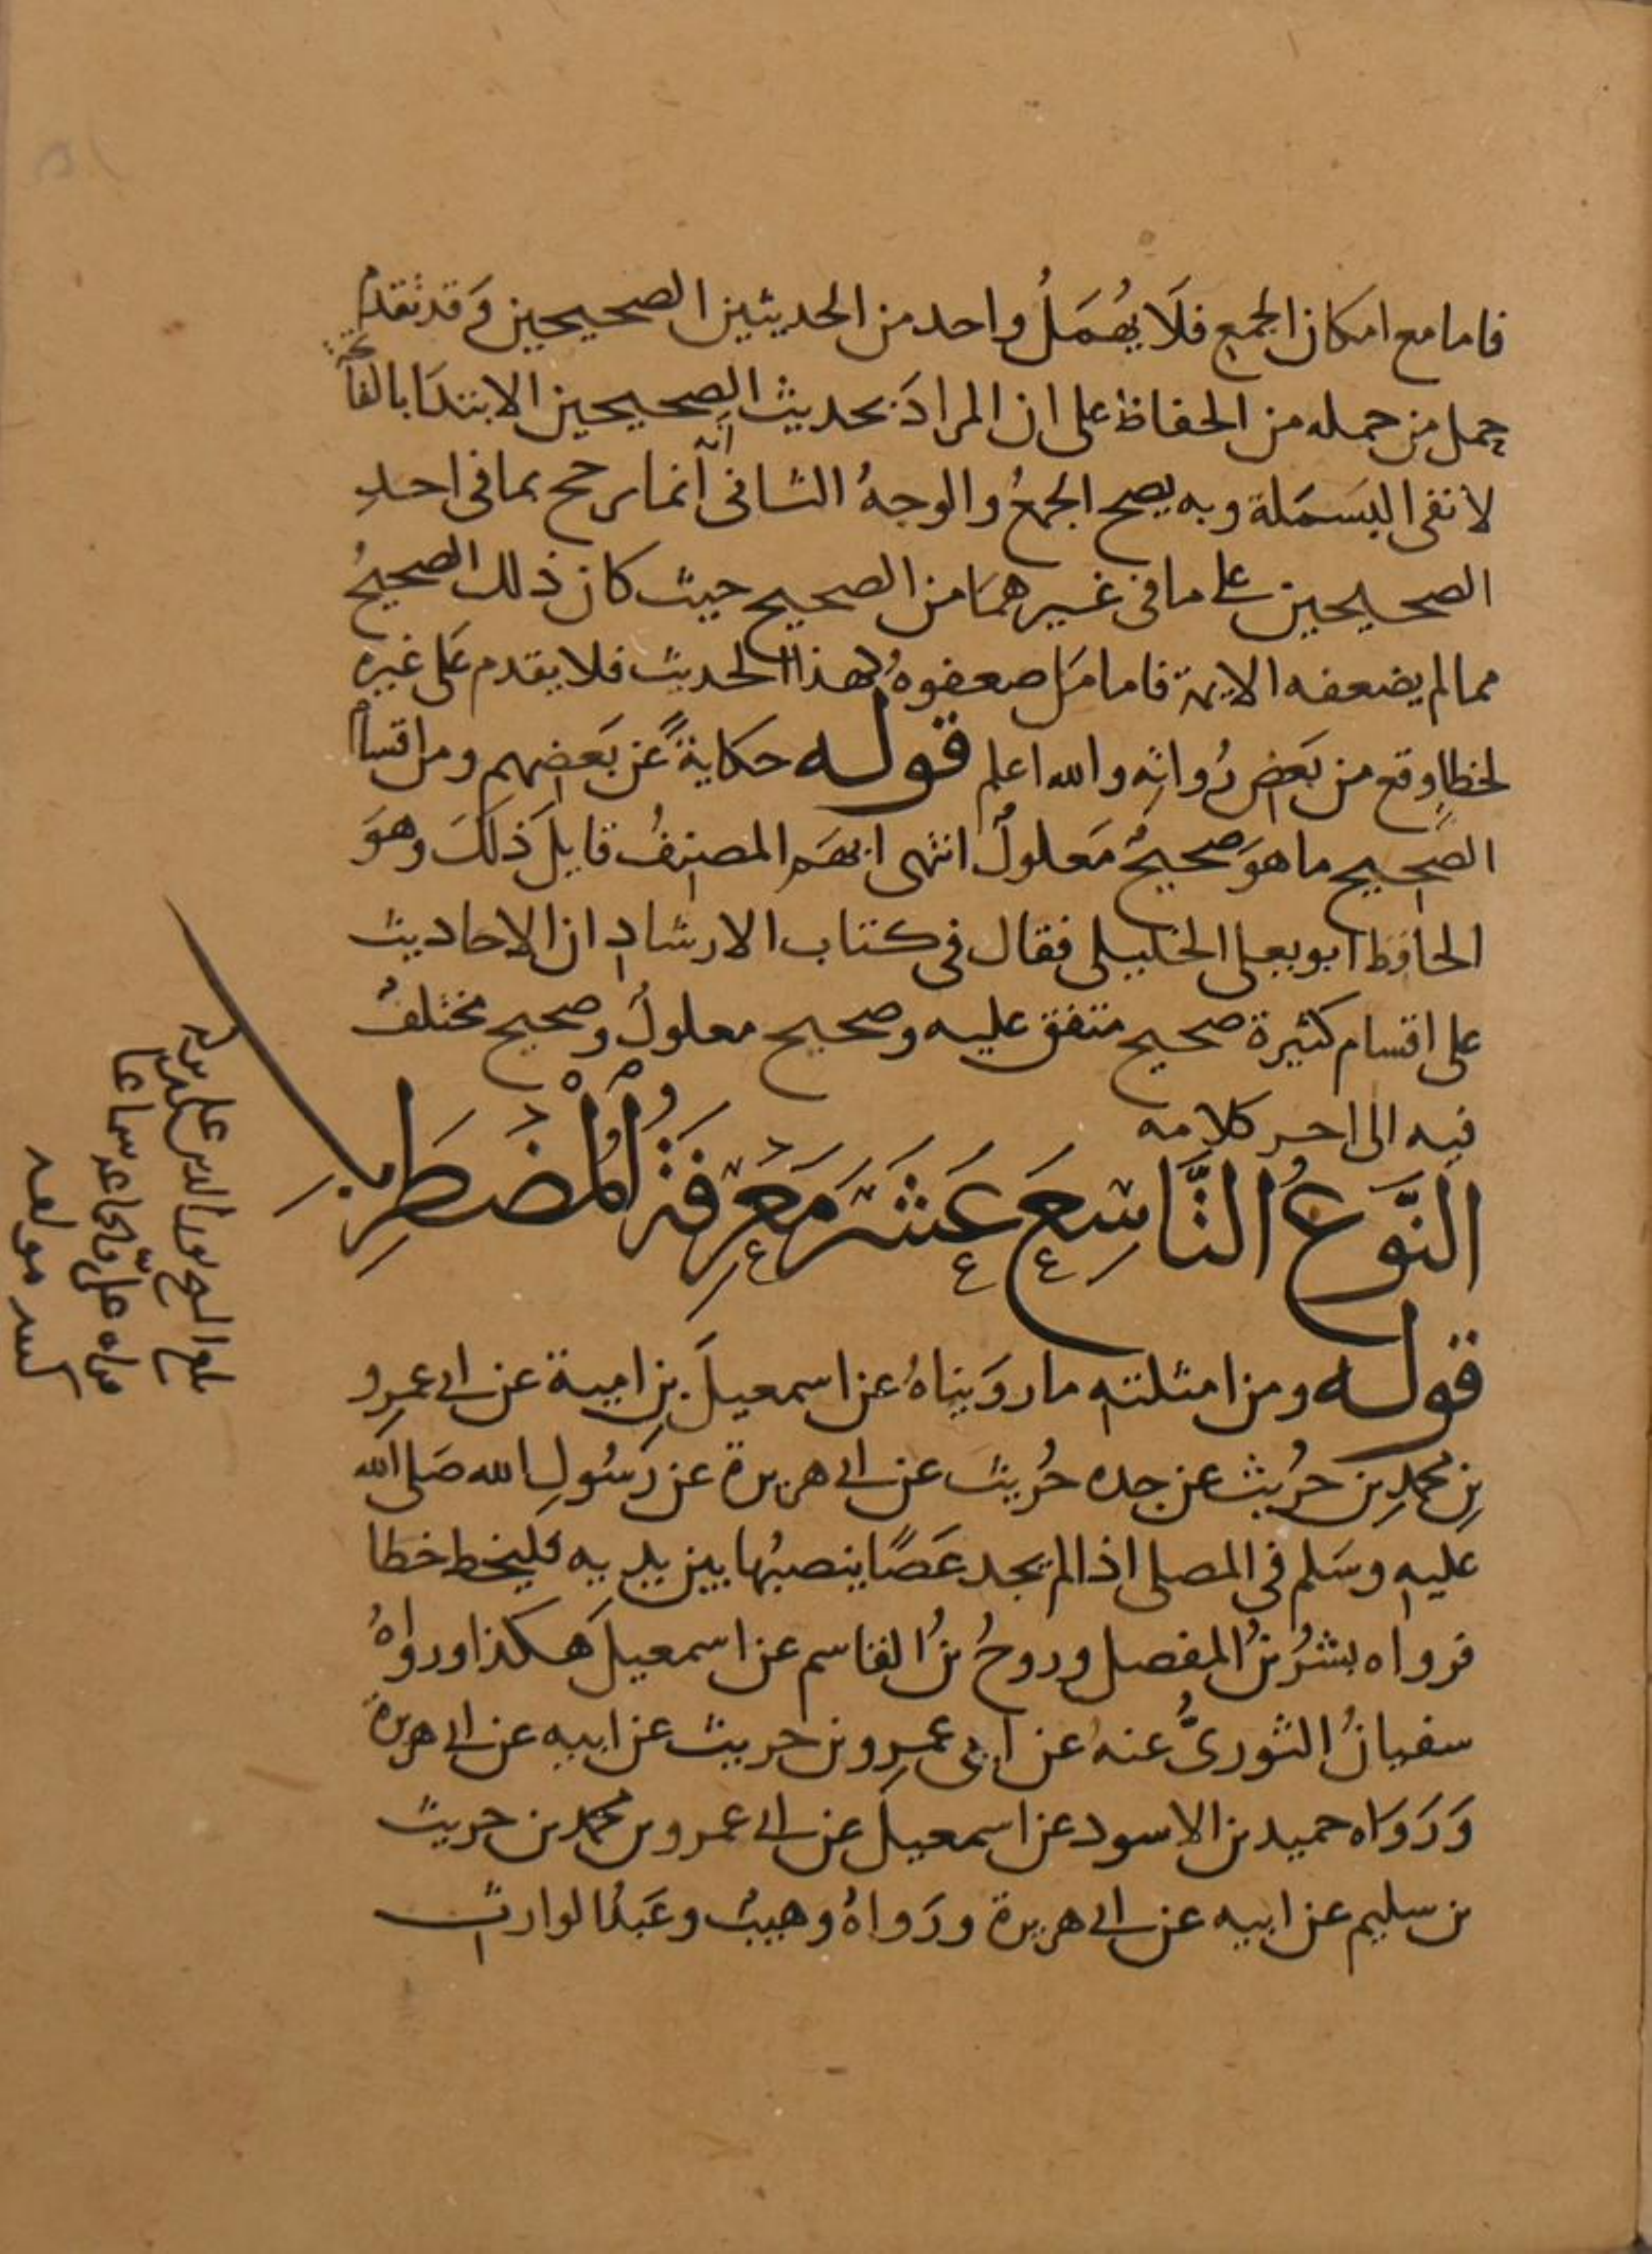 فاما مع امكان الجمع فلَا يُهمَلُ واحد من الحديثين الصحيحين وَقد تقدم
حمل من حمله من الحفاظ على ان المرادَ بحديث الصحيحين الابتدَا بالفاتحة
لا نفى البسَمَلة وبه يصح الجمعُ والوجهُ الثانى انّه انما يرجح بما فى احدِ
الصحيحين على ما فى غيرهمَا من الصحيح حيث كان ذلك الصحيحُ
مما لم يضعفه الايمة فاما مَا ضعفوهُ لهذا الحديث فلا يقدم عَلى غيره
لخطاٍ وقع من بَعض رُواته والله اعلم قوله حكايةً عَن بَعضهم ومن اقسام
الصحيح ما هوَ صحيحٌ مَعلولٌ انتهى ابهَم المصنفُ قايلَ ذلكَ وهوَ
الحافظ ابو يعلى الخليلى فقال فى كتاب الارشاد ان الاحاديث
على اقسام كثيرة صحيح متفق عليه وصحيح معلولٌ وصحيح مختلفٌ
فيه الى اخر كلامه
النَّوعُ التَّاسِعَ عَشَرَ مَعْرِفَةُ الْمُضْطَرِبِ
قوله ومن امثلته ما روَيناهُ عن اسمعيلَ بن امية عن ابى عمرو
بن محمدِ بن حرُيث عن جده حُريث عن ابى هريرة عن رَسُولِ الله صَلى الله
عليه وسَلم فى المصلى اذا لم يجد عَصًا ينصبُها بين يديه فليخط خطا
فرواه بشرُ بنُ المفضل وروحُ بنُ القاسم عن اسمعيلَ هكذا ورواهُ
سفيانُ الثورىُّ عنهُ عن ابى عمرو بن حريث عن ابيه عن ابى هريرة
وَرَوَاه حميد بن الاسود عن اسمعيل عن ابى عمرو بن محمد بن حريث
بن سليم عن ابيه عن ابى هريرة ورَواهُ وهيبُ وعَبدُ الوارث